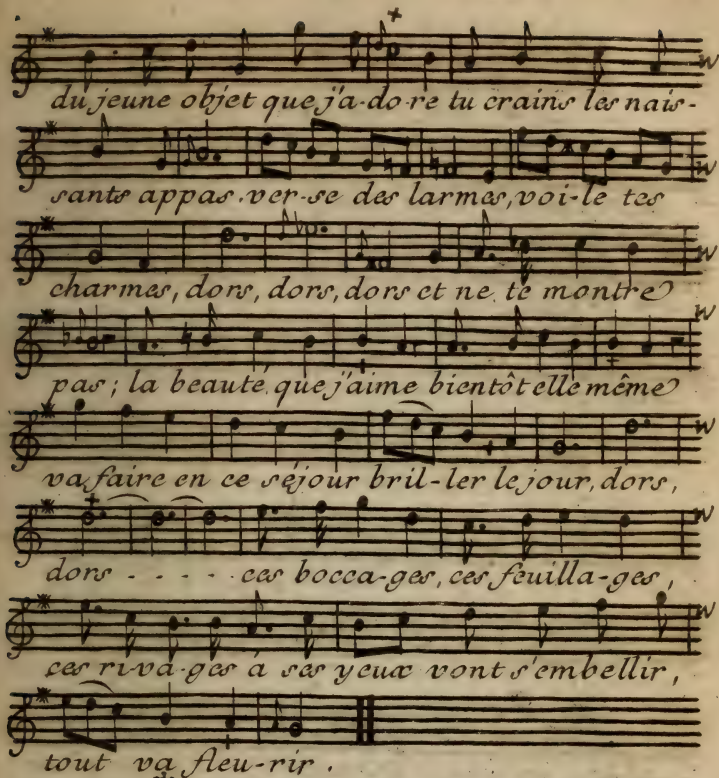 du jeune objet que j'a-do-re tu crains les nais-
sants appas. ver-se des larmes, voi-le tes
charmes, dors, dors, dors et ne te montre
pas; la beauté que j'aime bientôt elle même
va faire en ce séjour bril-ler le jour, dors,
dors - - - - - ces bocca-ges, ces feuilla-ges,
ces ri-va-ges à ses yeux vont s'embellir,
tout va fleu-rir.